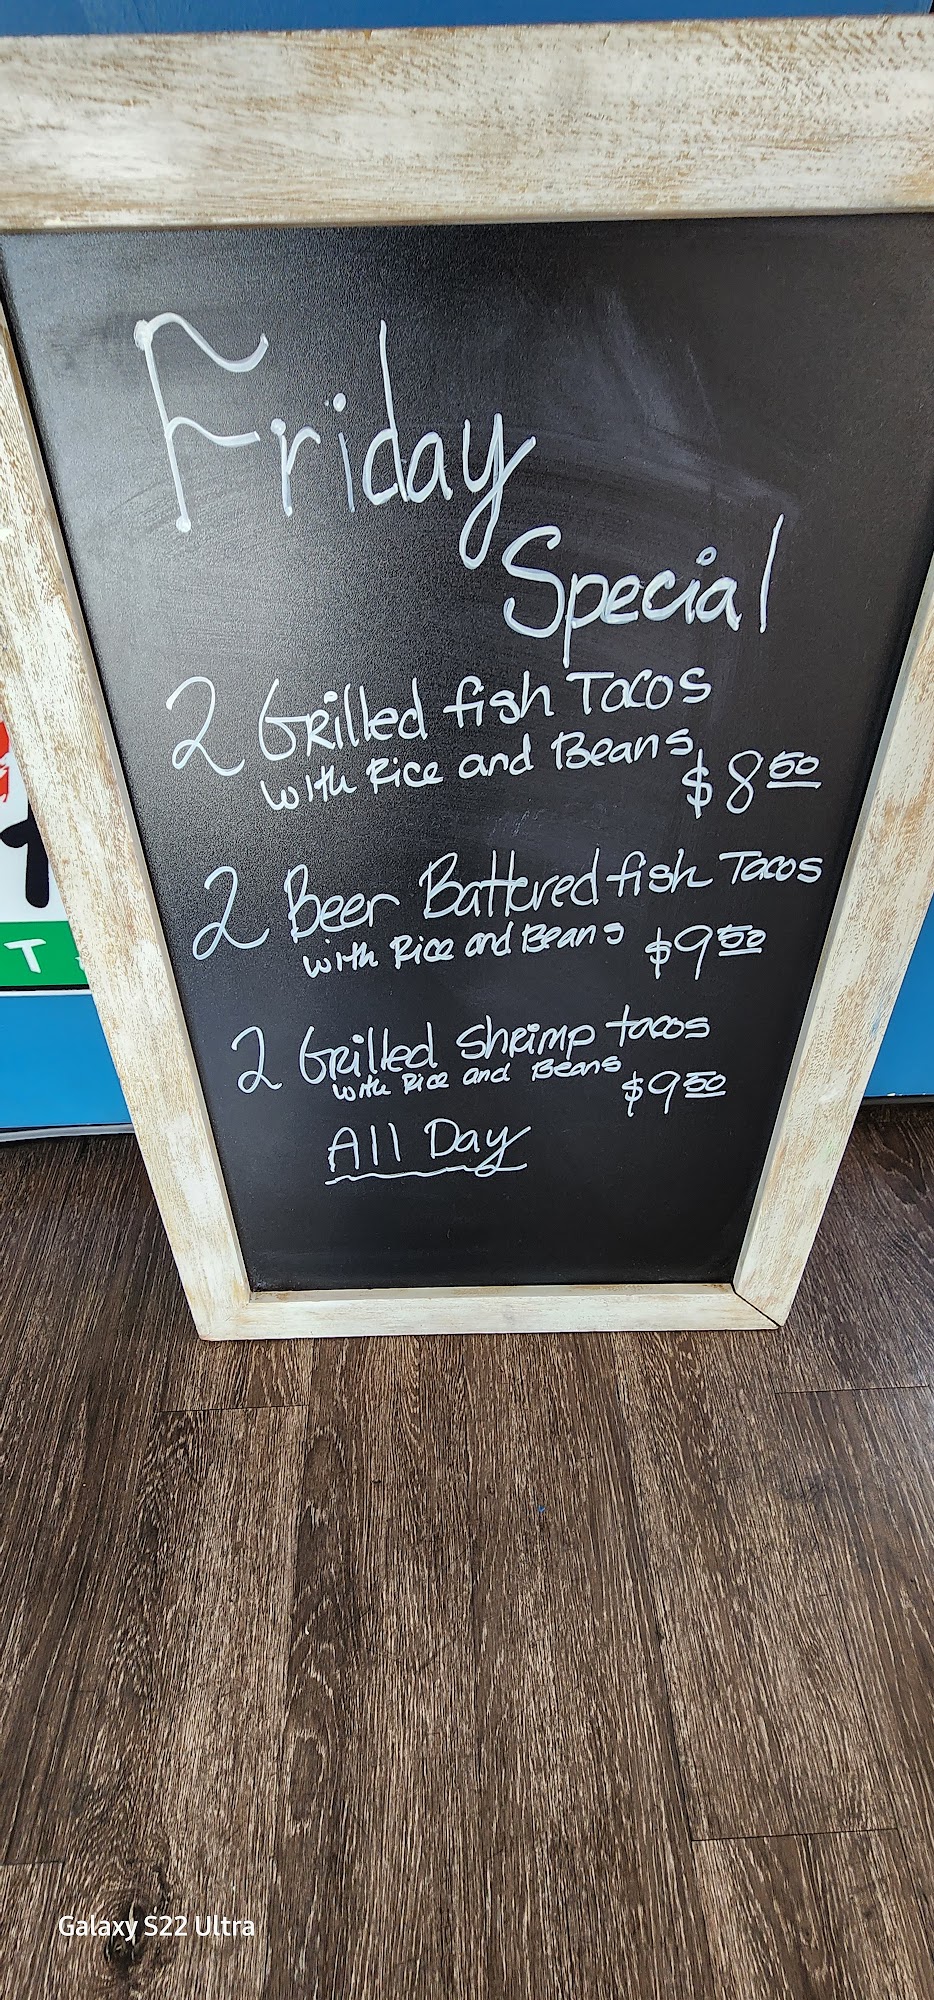 Friday
Special
2 Grilled fish Tacos
with Rice and Beans
$8 50
2 Beer Battered fish Tacos
with Rice and Beans $9 50
2 Grilled shrimp tacos
with Rice and Beans
$9 50
All Day
T
Galaxy S22 Ultra